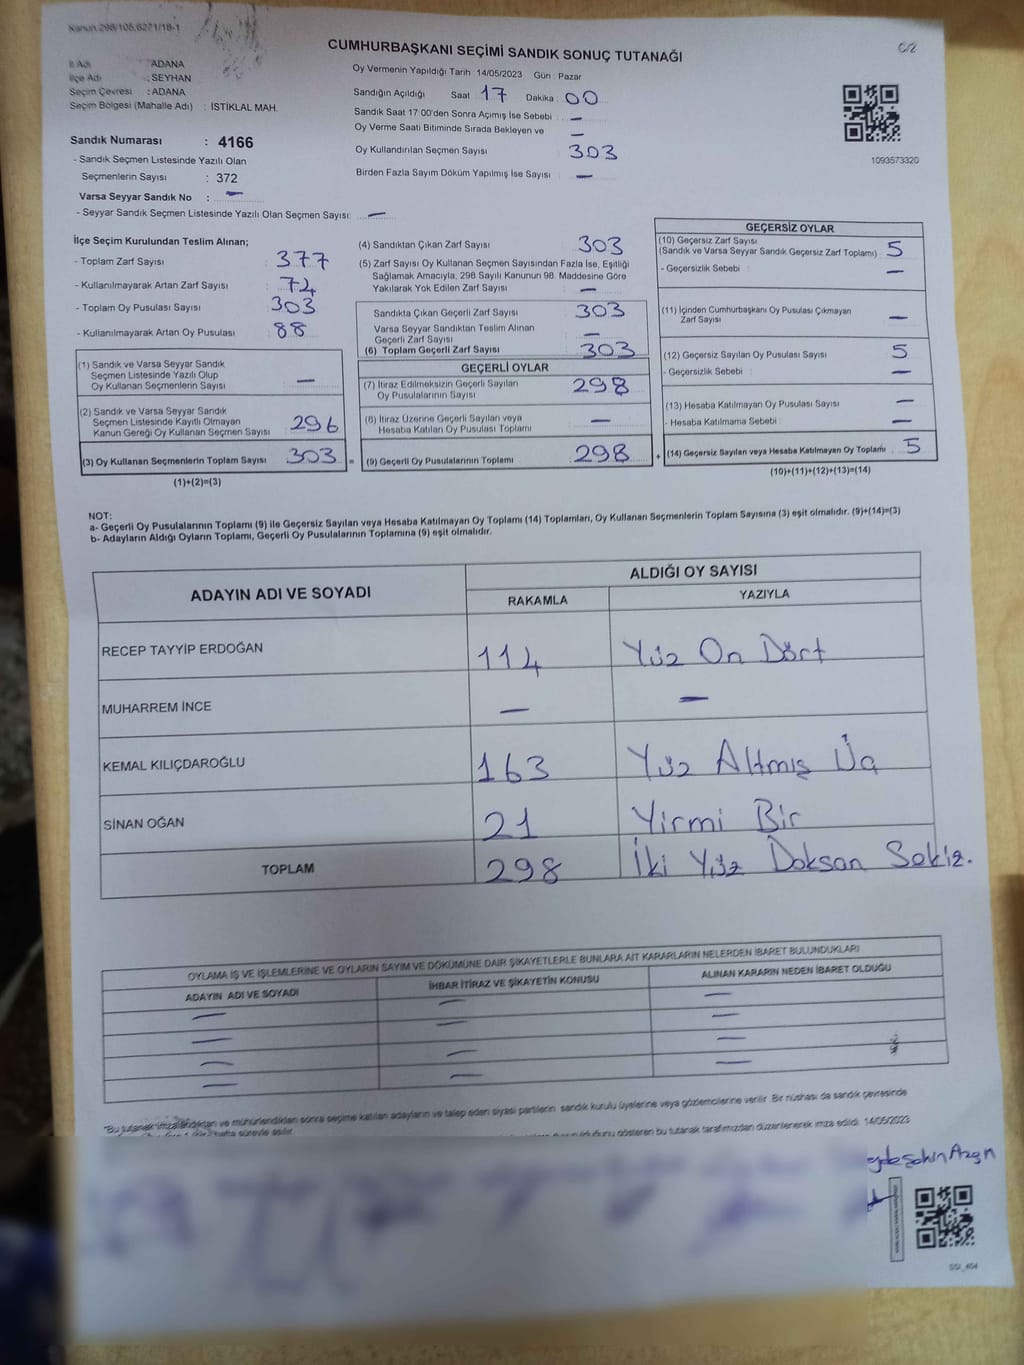 Kanun.298/105,6271/18-1
CUMHURBAŞKANI SEÇİMİ SANDIK SONUÇ TUTANAĞI
C/2
İl Adı : ADANA
İlçe Adı : SEYHAN
Seçim Çevresi : ADANA
Seçim Bölgesi (Mahalle Adı) : İSTİKLAL MAH.
Oy Vermenin Yapıldığı Tarih 14/05/2023 Gün : Pazar
Sandığın Açıldığı Saat 17 Dakika 00
Sandık Saat 17:00'den Sonra Açımış İse Sebebi : -
Oy Verme Saati Bitiminde Sırada Bekleyen ve -
Oy Kullandırılan Seçmen Sayısı 303
Birden Fazla Sayım Döküm Yapılmış İse Sayısı : -
1093573320
Sandık Numarası : 4166
- Sandık Seçmen Listesinde Yazılı Olan
Seçmenlerin Sayısı : 372
Varsa Seyyar Sandık No : -
- Seyyar Sandık Seçmen Listesinde Yazılı Olan Seçmen Sayısı: -
İlçe Seçim Kurulundan Teslim Alınan;
- Toplam Zarf Sayısı : 377
- Kullanılmayarak Artan Zarf Sayısı : 74
- Toplam Oy Pusulası Sayısı 303
- Kullanılmayarak Artan Oy Pusulası : 88
(1) Sandık ve Varsa Seyyar Sandık
Seçmen Listesinde Yazılı Olup
Oy Kullanan Seçmenlerin Sayısı : -
(2) Sandık ve Varsa Seyyar Sandık
Seçmen Listesinde Kayıtlı Olmayan
Kanun Gereği Oy Kullanan Seçmen Sayısı : 296
(3) Oy Kullanan Seçmenlerin Toplam Sayısı : 303 =
(1)+(2)=(3)
(4) Sandıktan Çıkan Zarf Sayısı 303
(5) Zarf Sayısı Oy Kullanan Seçmen Sayısından Fazla İse, Eşitliği
Sağlamak Amacıyla, 298 Sayılı Kanunun 98. Maddesine Göre
Yakılarak Yok Edilen Zarf Sayısı : -
Sandıkta Çıkan Geçerli Zarf Sayısı : 303
Varsa Seyyar Sandıktan Teslim Alınan
Geçerli Zarf Sayısı : -
(6) Toplam Geçerli Zarf Sayısı : 303
GEÇERLİ OYLAR
(7) İtiraz Edilmeksizin Geçerli Sayılan
Oy Pusulalarının Sayısı : 298
(8) İtiraz Üzerine Geçerli Sayılan veya
Hesaba Katılan Oy Pusulası Toplamı : -
(9) Geçerli Oy Pusulalarının Toplamı : 298 +
GEÇERSİZ OYLAR
(10) Geçersiz Zarf Sayısı
(Sandık ve Varsa Seyyar Sandık Geçersiz Zarf Toplamı) : 5
- Geçersizlik Sebebi : -
(11) İçinden Cumhurbaşkanı Oy Pusulası Çıkmayan
Zarf Sayısı : -
(12) Geçersiz Sayılan Oy Pusulası Sayısı : 5
- Geçersizlik Sebebi : -
(13) Hesaba Katılmayan Oy Pusulası Sayısı : -
- Hesaba Katılmama Sebebi : -
(14) Geçersiz Sayılan veya Hesaba Katılmayan Oy Toplamı : 5
(10)+(11)+(12)+(13)=(14)
NOT:
a- Geçerli Oy Pusulalarının Toplamı (9) ile Geçersiz Sayılan veya Hesaba Katılmayan Oy Toplamı (14) Toplamları, Oy Kullanan Seçmenlerin Toplam Sayısına (3) eşit olmalıdır. (9)+(14)=(3)
b- Adayların Aldığı Oyların Toplamı, Geçerli Oy Pusulalarının Toplamına (9) eşit olmalıdır.
ADAYIN ADI VE SOYADI
ALDIĞI OY SAYISI
RAKAMLA YAZIYLA
RECEP TAYYİP ERDOĞAN 114 Yüz On Dört
MUHARREM İNCE - -
KEMAL KILIÇDAROĞLU 163 Yüz Altmış Üç
SİNAN OĞAN 21 Yirmi Bir
TOPLAM 298 İki Yüz Doksan Sekiz.
OYLAMA İŞ VE İŞLEMLERİNE VE OYLARIN SAYIM VE DÖKÜMÜNE DAİR ŞİKAYETLERLE BUNLARA AİT KARARLARIN NELERDEN İBARET BULUNDUKLARI
ADAYIN ADI VE SOYADI İHBAR İTİRAZ VE ŞİKAYETİN KONUSU ALINAN KARARIN NEDEN İBARET OLDUĞU
- - -
- - -
- - -
- - -
"Bu tutanak imzalandıktan ve mühürlendikten sonra seçime katılan adayların ve talep eden siyasi partilerin sandık kurulu üyelerine veya gözlemcilerine verilir. Bir nüshası da sandık çevresinde
hafta süreyle asılır. olduğunu gösteren bu tutanak tarafımızdan düzenlenerek imza edildi. 14/05/2023